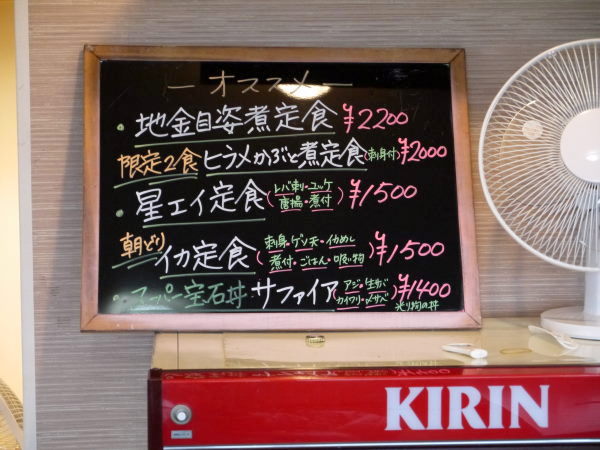 ーオススメー
・地金目姿煮定食 ¥2200
限定2食 ヒラメかぶと煮定食(刺身付) ¥2000
・星エイ定食(レバ刺・ユッケ ¥1500
唐揚・煮付)
朝どり イカ定食(刺身・ゲソ天・イカめし ¥1500
煮付・ごはん・吸い物)
・スーパー宝石丼 サファイア(アジ・生サバ ¥1400
カイワリ・〆サバ)
光り物の丼
KIRIN